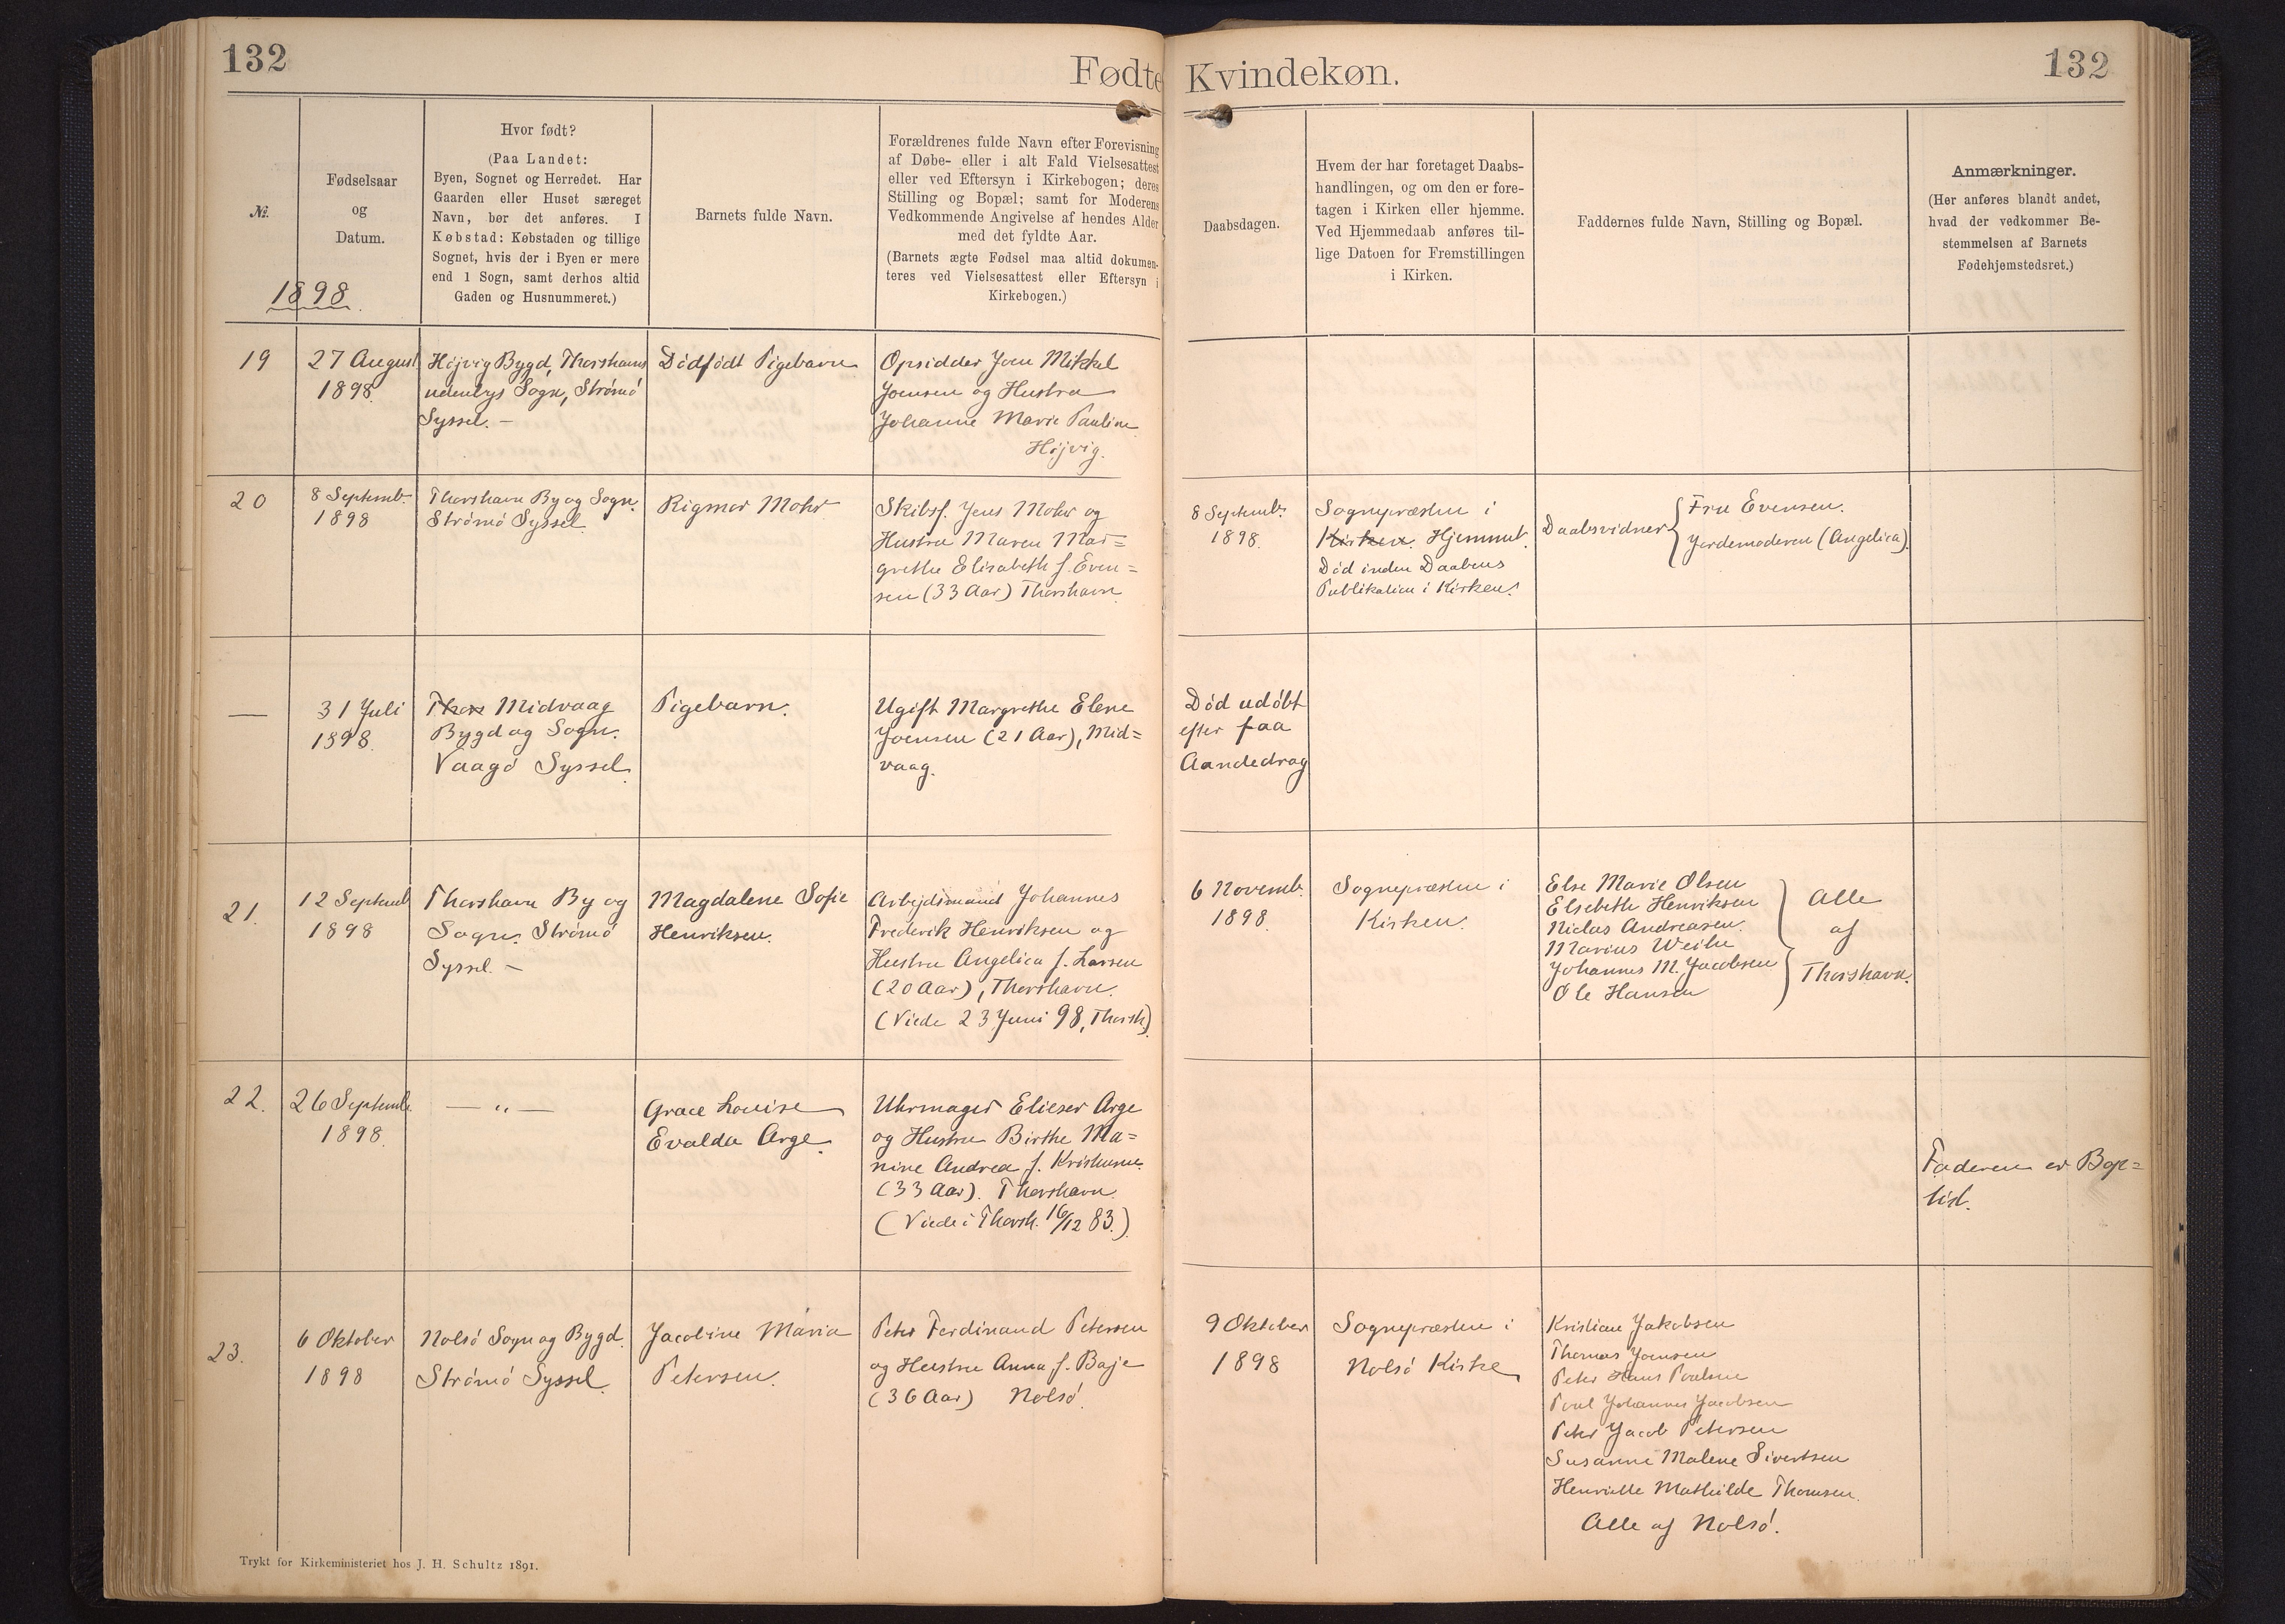 132
Fødte
Kvindekøn.
132
№.
Fødselsaar
og
Datum.
1898.
Hvor født?
(Paa Landet:
Byen, Sognet og Herredet. Har
Gaarden eller Huset særeget
Navn, bør det anføres. I
Købstad: Købstaden og tillige
Sognet, hvis der i Byen er mere
end 1 Sogn, samt derhos altid
Gaden og Husnummeret.)
Barnets fulde Navn.
Forældrenes fulde Navn efter Forevisning
af Døbe- eller i alt Fald Vielsesattest
eller ved Eftersyn i Kirkebogen; deres
Stilling og Bopæl; samt for Moderens
Vedkommende Angivelse af hendes Alder
med det fyldte Aar.
(Barnets ægte Fødsel maa altid dokumen-
teres ved Vielsesattest eller Eftersyn i
Kirkebogen.)
Daabsdagen.
Hvem der har foretaget Daabs-
handlingen, og om den er fore-
tagen i Kirken eller hjemme.
Ved Hjemmedaab anføres til-
lige Datoen for Fremstillingen
i Kirken.
Faddernes fulde Navn, Stilling og Bopæl.
Anmærkninger.
(Her anføres blandt andet,
hvad der vedkommer Be-
stemmelsen af Barnets
Fødehjemstedsret.)
19
27 August
1898.
Højvig Bygd, Thorshavns
udenbys Sogn, Strømø
Syssel. —
Dødfødt Pigebarn
Opsidder Joen Mikkel
Joensen og Hustru
Johanne Marie Pauline
Højvig.
20
8 Septemb.
1898
Thorshavn By og Sogn.
Strømø Syssel
Rigmor Mohr
Skibsf. Jens Mohr og
Hustru Maren Mar=
grethe Elisabeth f. Even=
sen (33 Aar) Thorshavn
8 Septemb.
1898.
Sognepræsten i
Kirken. Hjemmet.
Død inden Daabens
Publikation i Kirken.
Daabsvidner
Fru Evensen.
Jordemoderen (Angelica).
—
31 Juli
1898.
Thors Midvaag
Bygd og Sogn.
Vaagø Syssel.
Pigebarn.
Ugift Margrethe Elene
Joensen (21 Aar), Mid=
vaag.
Død udøbt
efter faa
Aandedrag
21.
12 Septemb
1898
Thorshavn By og
Sogn. Strømø
Syssel. —
Magdalene Sofie
Henriksen.
Arbejdsmand Johannes
Frederik Henriksen og
Hustru Angelica f. Larsen
(20 Aar), Thorshavn.
(Viede 23 Juni 98, Thorsh)
6 Novemb.
1898.
Sognepræsten i
Kirken.
Else Marie Olsen
Elsebeth Henriksen
Niclas Andreasen.
Marius Weihe
Johannes M. Jacobsen
Ole Hansen
Alle
af
Thorshavn.
22.
26 Septemb.
1898.
— „ —
Grace Louise
Evalda Arge.
Uhrmager Elieser Arge
og Hustru Birthe Ma=
nine Andrea f.
(33 Aar). Thorshavn.
(Viede i Thorsh. 16/12 83.)
Faderen er Bap=
tist.
23.
6 Oktober
1898
Nolsø Sogn og Bygd.
Strømø Syssel.
Jacobine Maria
Petersen.
Peter Ferdinand Petersen
og Hustru Anna f. Baje
(36 Aar) Nolsø.
9 Oktober
1898
Sognepræsten i
Nolsø Kirke
Kristian Jakobsen
Thomas Joensen
Peter Hans Poulsen
Poul Johannes Jacobsen
Peter Jacob Petersen
Susanne Malene Sivertsen
Henriette Mathilde Thomsen.
Alle af Nolsø.
Trykt for Kirkeministeriet hos J. H. Schultz 1891.